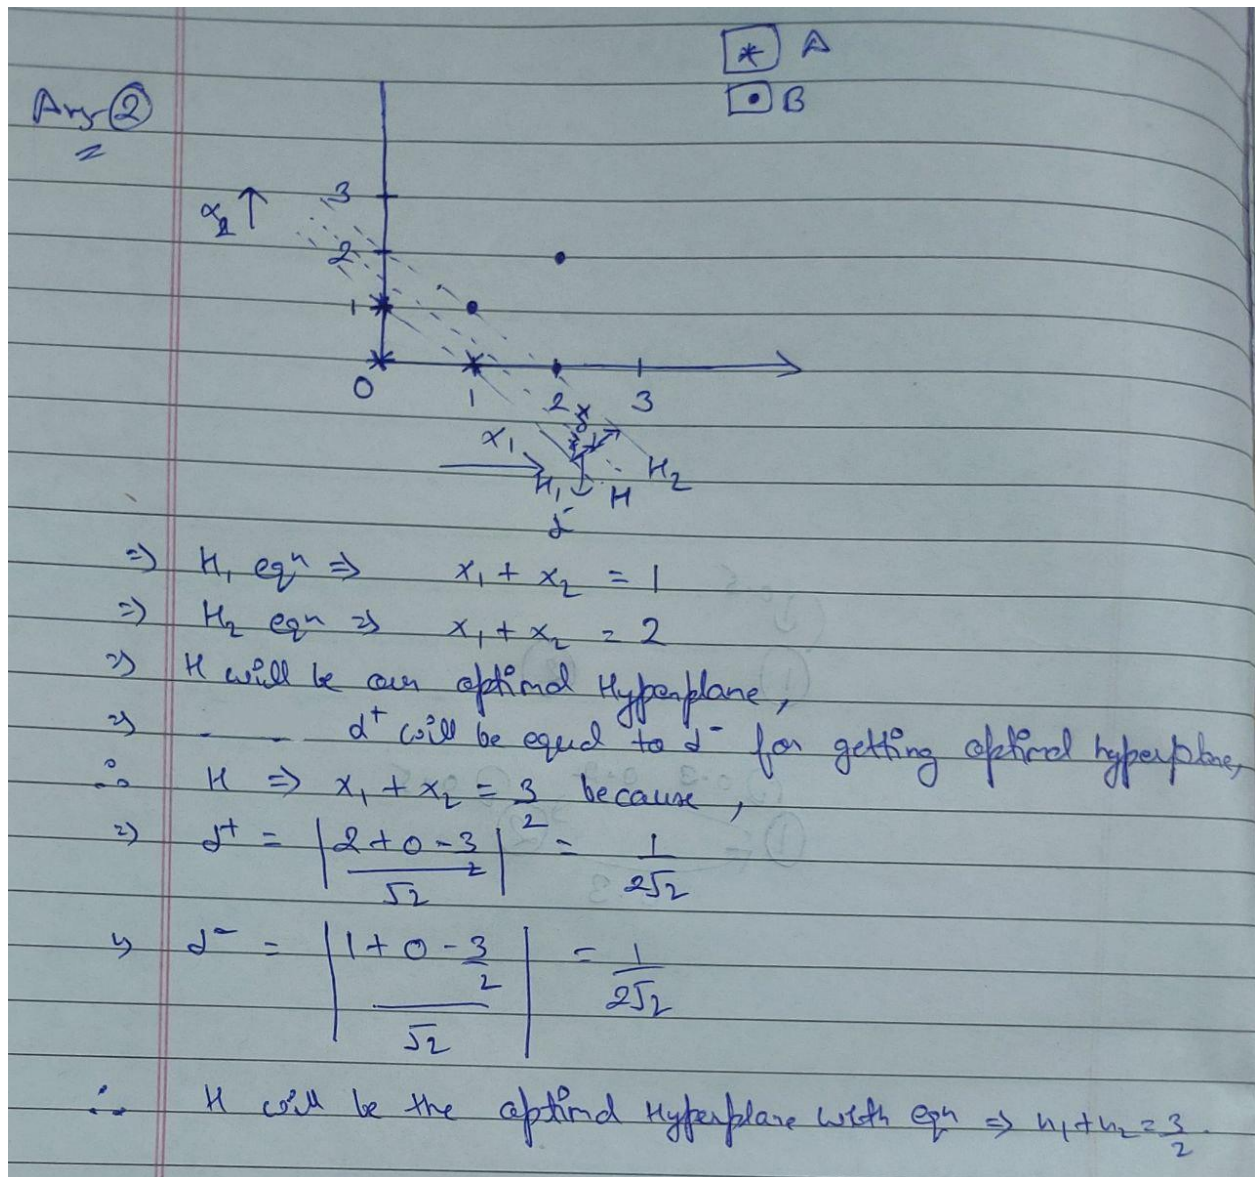 * A
• B
Ans ②
3
x2 ↑
2
1
0 1 2 3
x1
H1 H H2
d-
=> H1 eqn => x1 + x2 = 1
=> H2 eqn => x1 + x2 = 2
=> H will be our optimal Hyperplane,
=> d+ will be equal to d- for getting optimal hyperplane,
∴ H => x1 + x2 = 3/2 because,
=> d+ = |(2 + 0 - 3/2)/√2| = 1/(2√2)
=> d- = |(1 + 0 - 3/2)/√2| = 1/(2√2)
∴ H will be the optimal Hyperplane with eqn => x1 + x2 = 3/2.